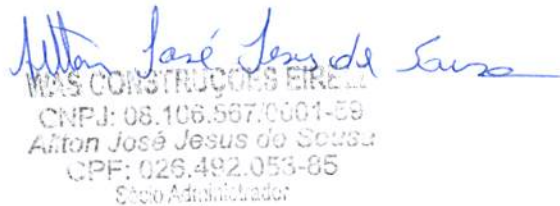 Ailton José Jesus de Sousa
MAS CONSTRUÇOES EIRELI
CNPJ: 08.106.567/0001-59
Ailton José Jesus de Sousa
CPF: 026.492.053-85
Sócio Administrador